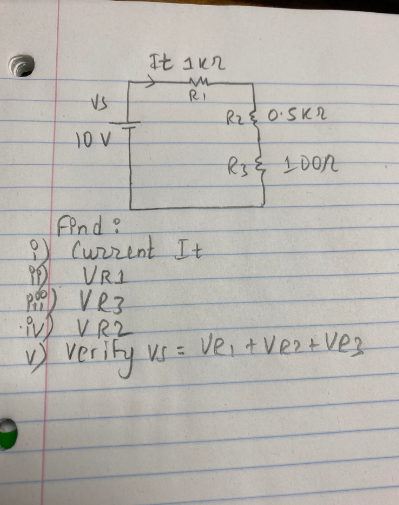 It 1KΩ
R1
Vs
R2 0.5KΩ
10 V
R3 100Ω
Find:
i) Current It
ii) VR1
iii) VR3
iv) VR2
v) Verify Vs = VR1 + VR2 + VR3